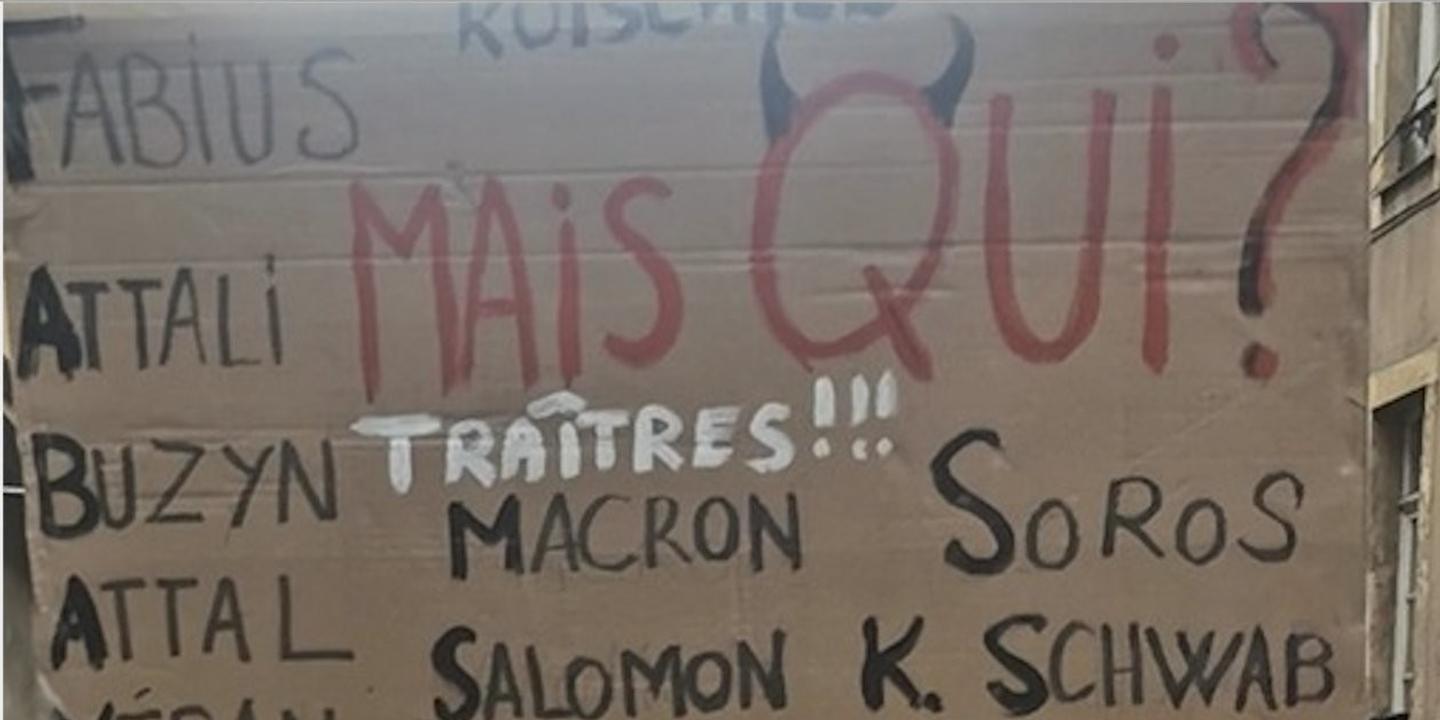 FABIUS
MAIS QUI?
ATTALI
TRAÎTRES!!!
BUZYN
MACRON
SOROS
ATTAL
SALOMON
K. SCHWAB